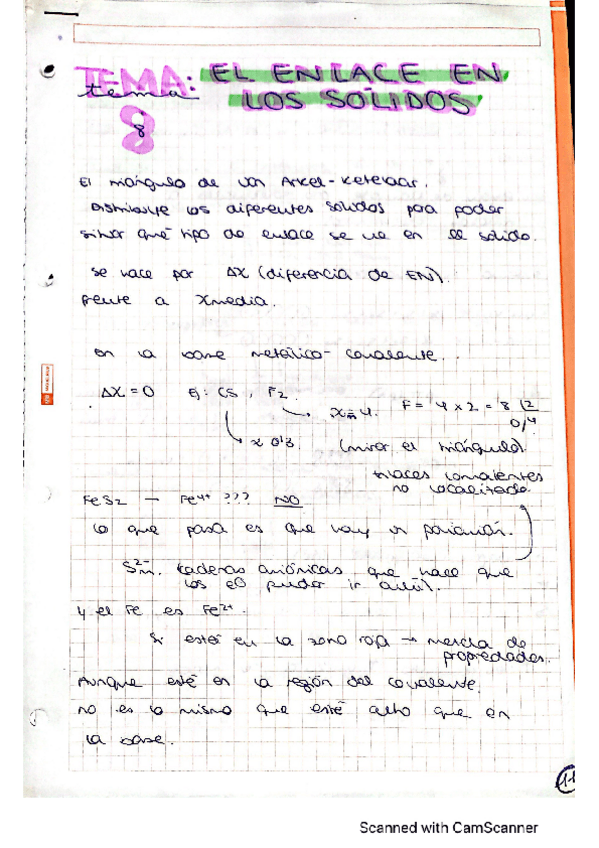 TEMA: EL ENLACE EN
tema LOS SÓLIDOS
8
El triángulo de Van Arkel-Ketelaar.
los diferentes sólidos para poder
situar qué tipo de enlace se ve en el sólido.
se hace por ΔX (diferencia de EN).
frente a Xmedia.
en la base metálico-covalente.
ΔX = 0 Ej: CS, F2.
Xm = 4. F = 4 x 2 = 8 |2
0/4
x 0'3. (mirar el triángulo).
enlaces covalentes
no localizado.
FeS2 — Fe4+ ??? NO
lo que pasa es que hay un polianión.
Sm2-. Cadenas aniónicas que hace que
los e⊖ puedan ir
y el Fe es Fe2+.
Si está en la zona roja → mezcla de
propiedades.
Aunque esté en la región del covalente.
no es lo mismo que esté alto que en
la base.
11
Scanned with CamScanner